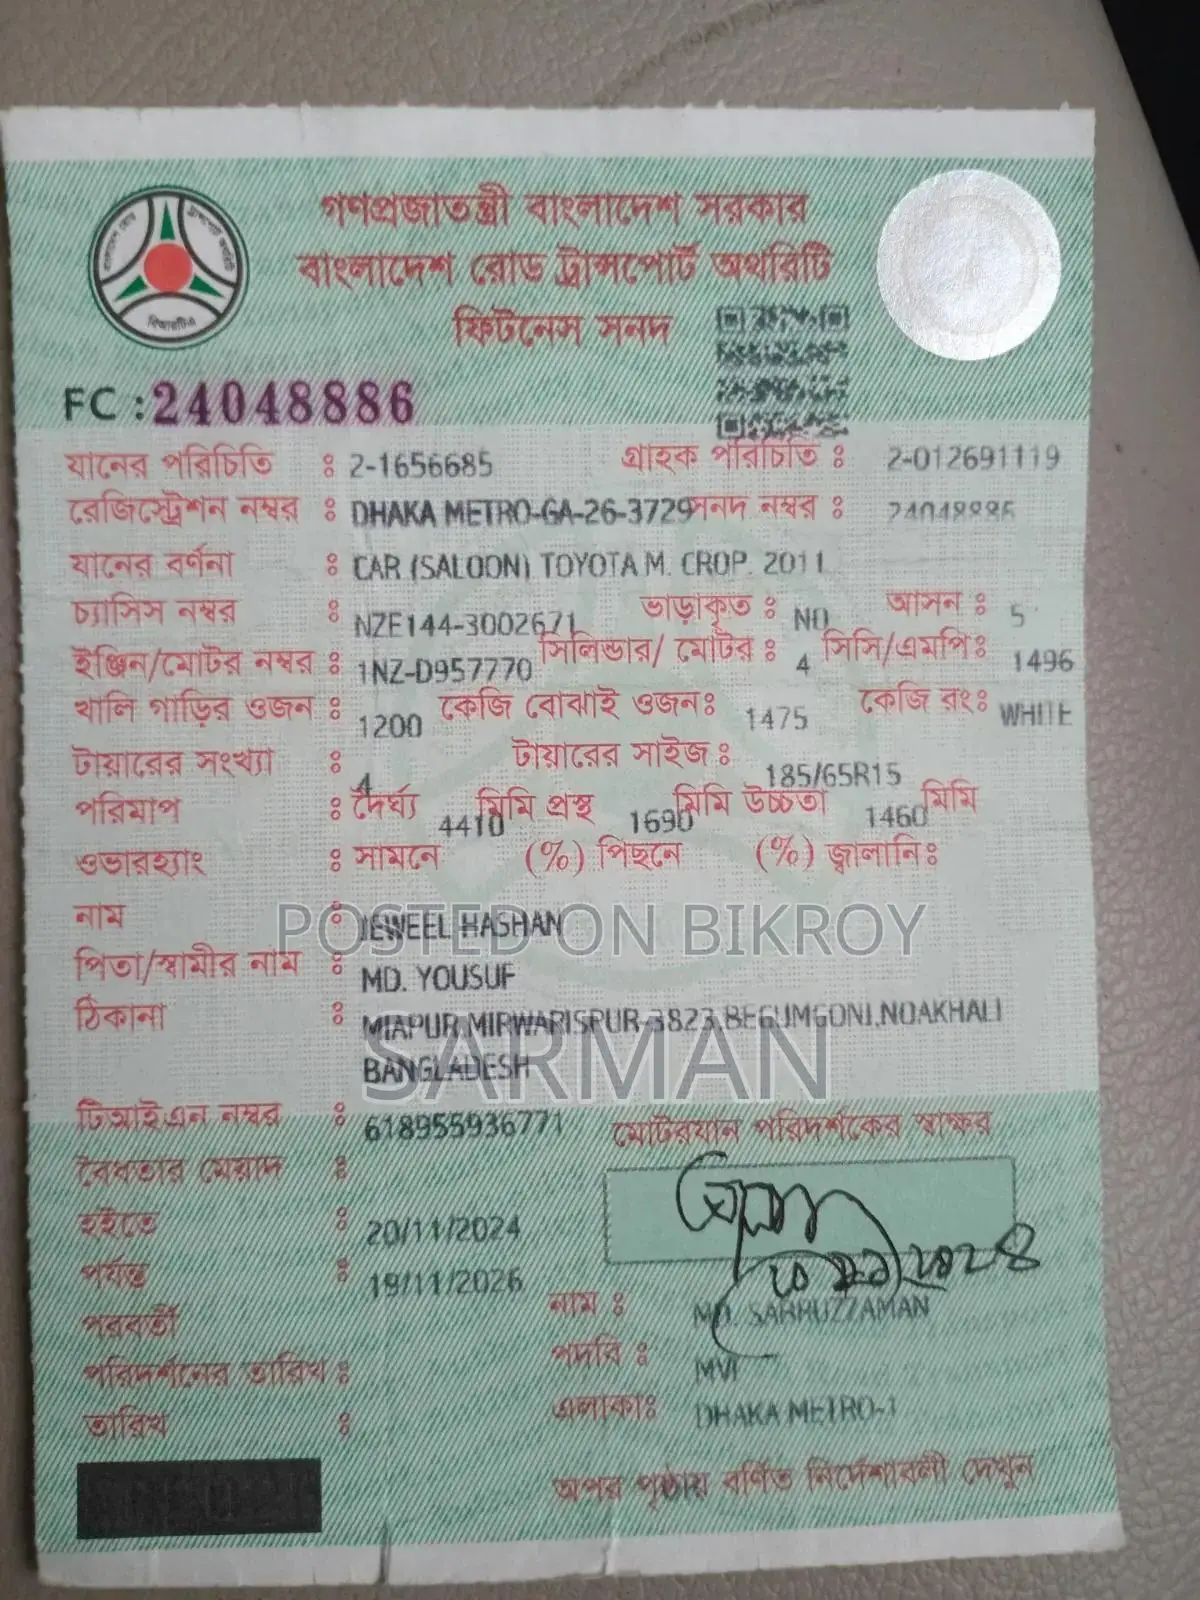 গণপ্রজাতন্ত্রী বাংলাদেশ সরকার
বাংলাদেশ রোড ট্রান্সপোর্ট অথরিটি
ফিটনেস সনদ
বিআরটিএ
FC : 24048886
যানের পরিচিতি : 2-1656685 গ্রাহক পরিচিতি : 2-012691119
রেজিস্ট্রেশন নম্বর : DHAKA METRO-GA-26-3729 সনদ নম্বর : 24048886
যানের বর্ণনা : CAR (SALOON) TOYOTA M. CROP. 2011
চ্যাসিস নম্বর : NZE144-3002671 ভাড়াকৃত : NO আসন : 5
ইঞ্জিন/মোটর নম্বর : 1NZ-D957770 সিলিন্ডার/ মোটর : 4 সিসি/এমপি: 1496
খালি গাড়ির ওজন : 1200 কেজি বোঝাই ওজন: 1475 কেজি রং: WHITE
টায়ারের সংখ্যা : 4 টায়ারের সাইজ : 185/65R15
পরিমাপ : দৈর্ঘ্য 4410 মিমি প্রস্থ 1690 মিমি উচ্চতা 1460 মিমি
ওভারহ্যাং : সামনে (%) পিছনে (%) জ্বালানি:
নাম : JEWEEL HASHAN
POSTED ON BIKROY
পিতা/স্বামীর নাম : MD. YOUSUF
ঠিকানা : MIAPUR,MIRWARISPUR-3823,BEGUMGONJ,NOAKHALI
SARMAN
BANGLADESH
টিআইএন নম্বর : 618955936771 মোটরযান পরিদর্শকের স্বাক্ষর
বৈধতার মেয়াদ :
হইতে : 20/11/2024
পর্যন্ত : 19/11/2026
নাম : MD. SARHUZZAMAN
পরবর্তী
পরিদর্শনের তারিখ : পদবি : MVI
তারিখ : এলাকা: DHAKA METRO-1
অপর পৃষ্ঠায় বর্ণিত নির্দেশাবলী দেখুন